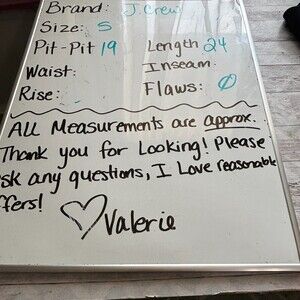 Brand: J. Crew
Size: S
Pit-Pit 19 Length 24
Waist: Inseam:
Rise: Flaws: ∅
ALL Measurements are approx.
Thank you for Looking! Please
sk any questions, I Love reasonable
ffers!
♡Valerie